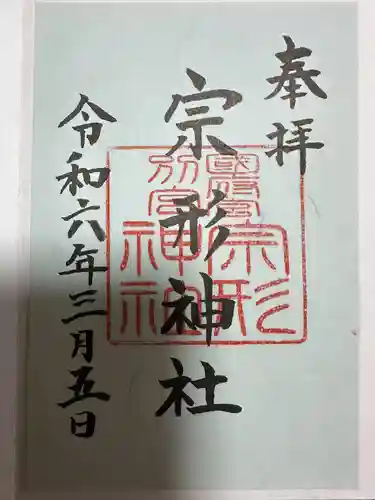 奉拝
宗形神社
令和六年三月五日
宗形
神社
別宮